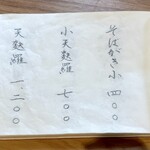 そばがき小 四〇〇
小天麩羅 七〇〇
天麩羅 一二〇〇